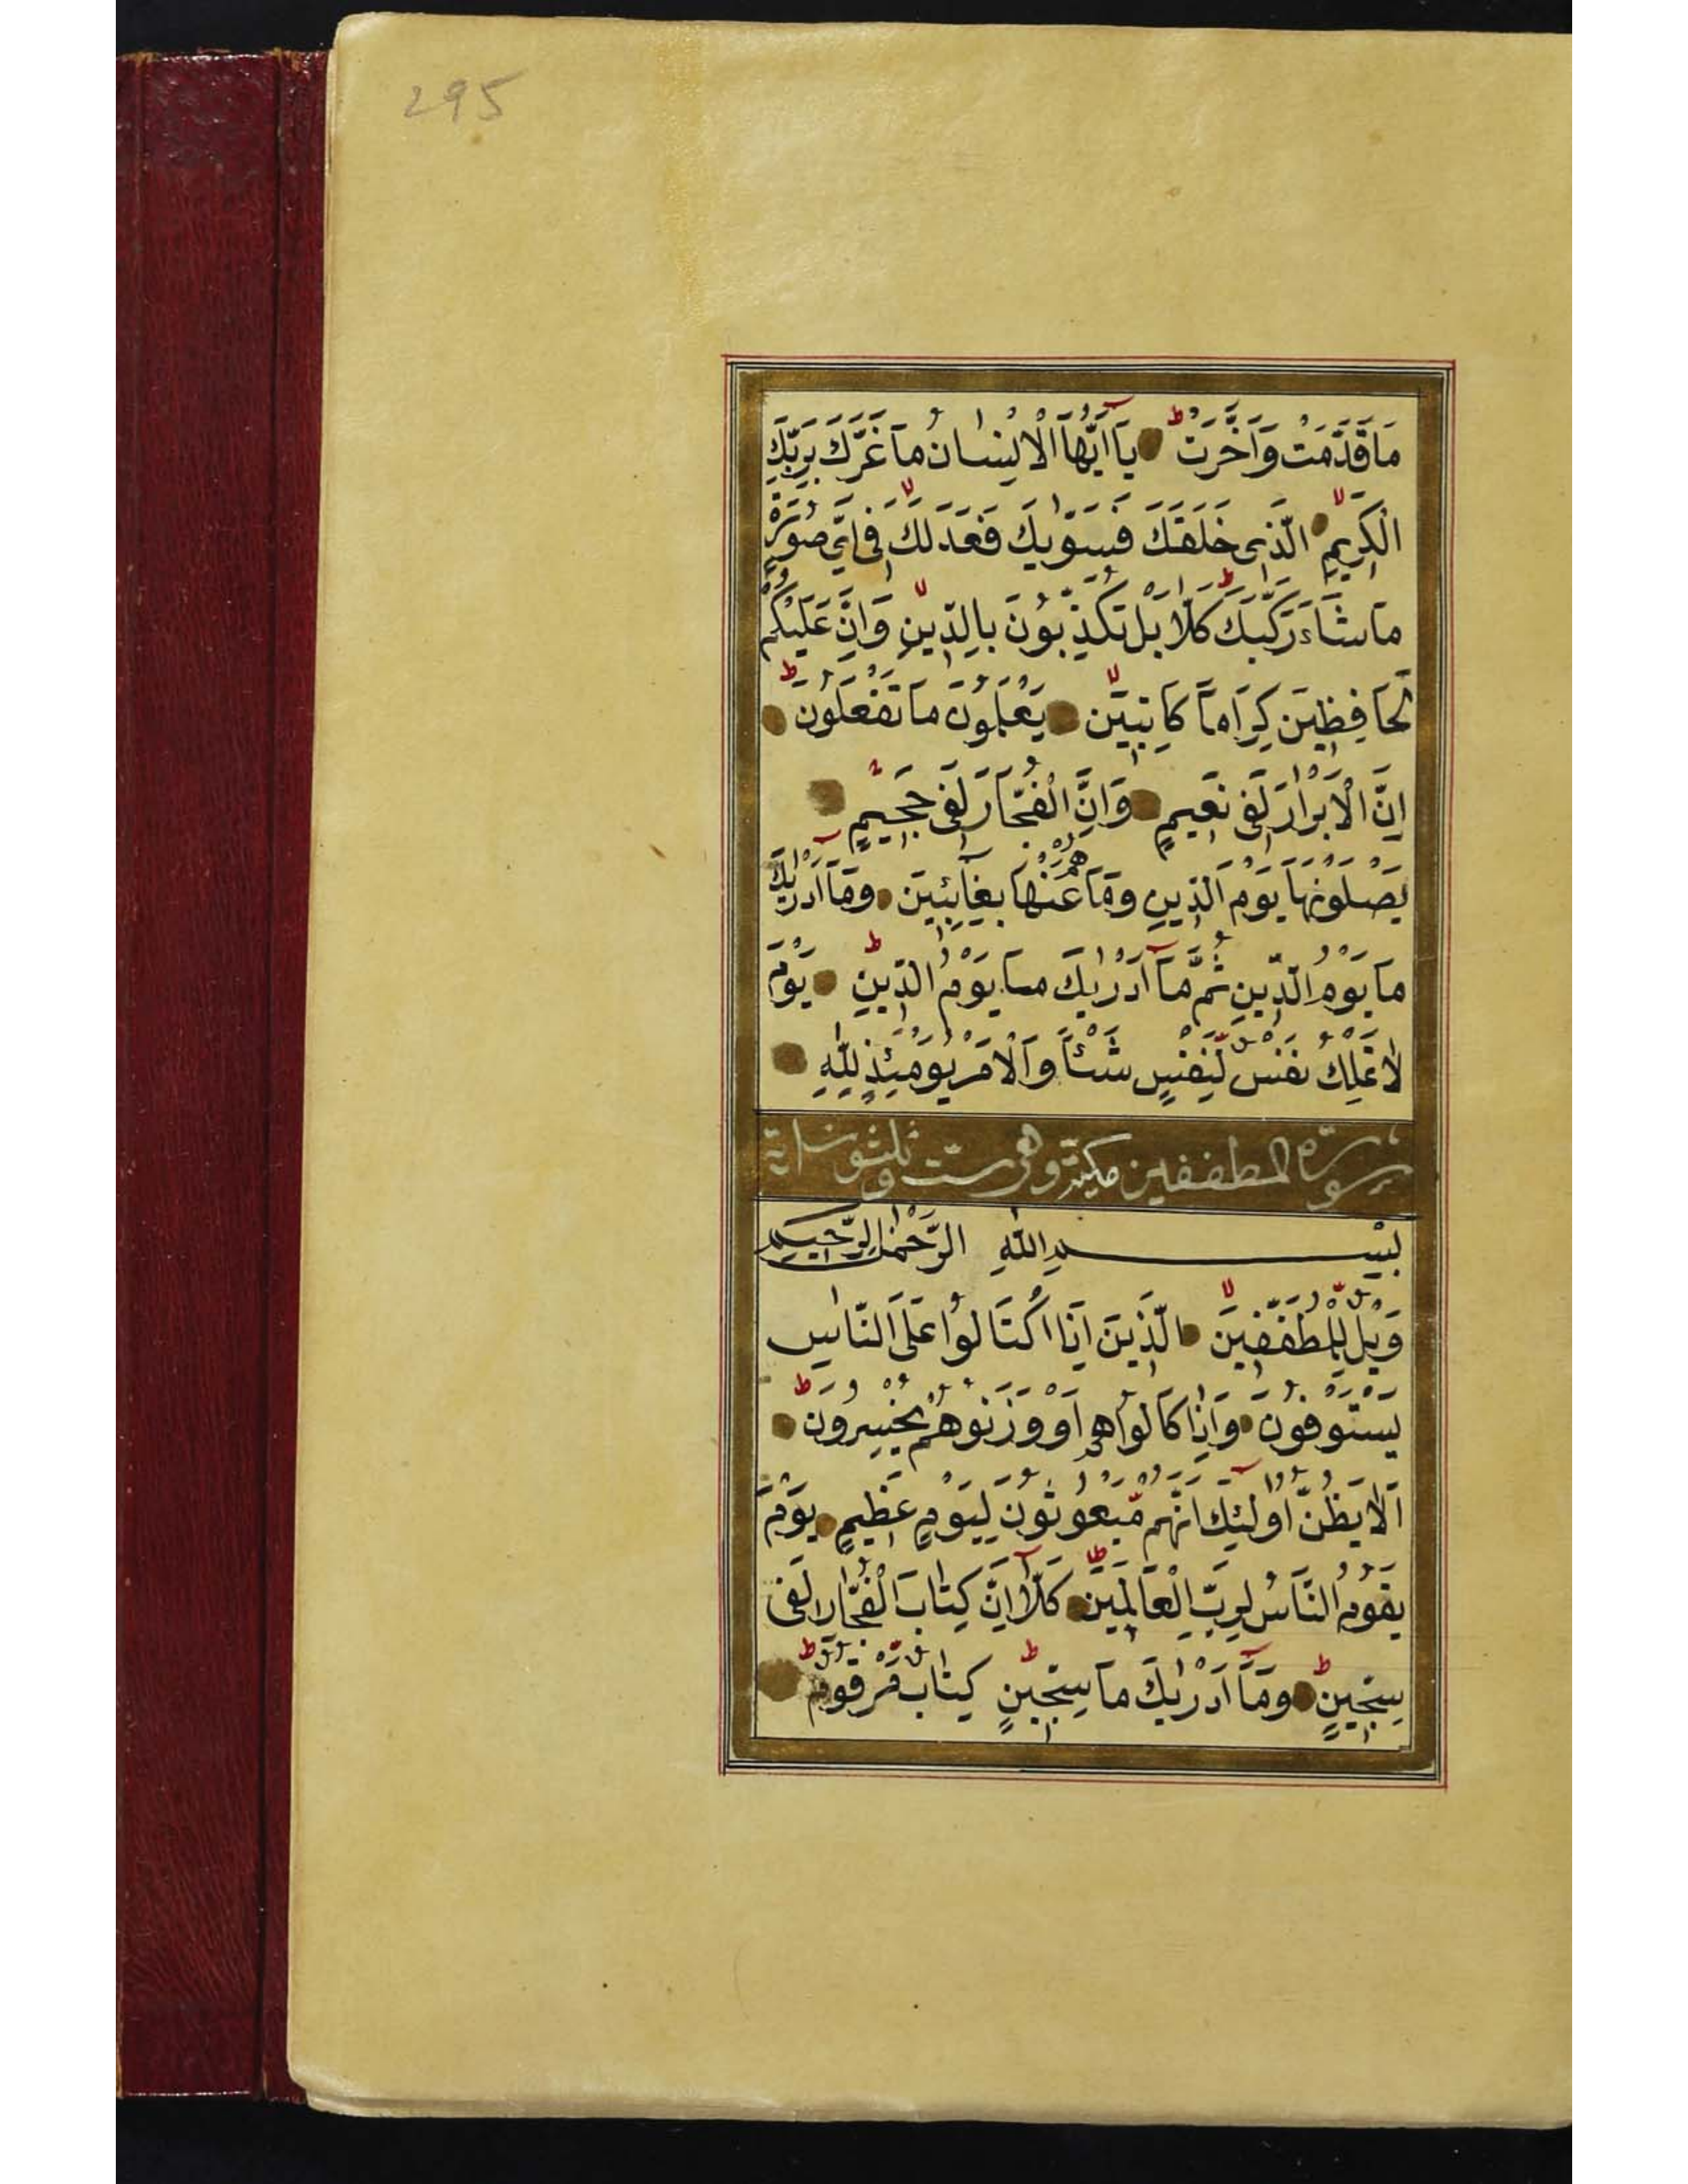 295
مَا قَدَّمَتْ وَاَخَّرَتْ يَآ اَيُّهَا الْاِنْسَانُ مَا غَرَّكَ بِرَبِّكَ
الْكَرِيمِ الَّذِى خَلَقَكَ فَسَوّٰيكَ فَعَدَلَكَ فِى اَىِّ صُورَةٍ
مَا شَآءَ رَكَّبَكَ كَلَّا بَلْ تُكَذِّبُونَ بِالدِّينِ وَاِنَّ عَلَيْكُمْ
لَحَافِظِينَ كِرَامًا كَاتِبِينَ يَعْلَمُونَ مَا تَفْعَلُونَ
اِنَّ الْاَبْرَارَ لَفِى نَعِيمٍ وَاِنَّ الْفُجَّارَ لَفِى جَحِيمٍ
يَصْلَوْنَهَا يَوْمَ الدِّينِ وَمَا هُمْ عَنْهَا بِغَآئِبِينَ وَمَآ اَدْرٰيكَ
مَا يَوْمُ الدِّينِ ثُمَّ مَآ اَدْرٰيكَ مَا يَوْمُ الدِّينِ يَوْمَ
لَا تَمْلِكُ نَفْسٌ لِنَفْسٍ شَيْئًا وَالْاَمْرُ يَوْمَئِذٍ لِلّٰهِ
سورة المطففين مكية وهى ست وثلثون اية
بِسْمِ اللّٰهِ الرَّحْمٰنِ الرَّحِيمِ
وَيْلٌ لِلْمُطَفِّفِينَ الَّذِينَ اِذَا اكْتَالُوا عَلَى النَّاسِ
يَسْتَوْفُونَ وَاِذَا كَالُوهُمْ اَوْ وَزَنُوهُمْ يُخْسِرُونَ
اَلَا يَظُنُّ اُولٰٓئِكَ اَنَّهُمْ مَبْعُوثُونَ لِيَوْمٍ عَظِيمٍ يَوْمَ
يَقُومُ النَّاسُ لِرَبِّ الْعَالَمِينَ كَلَّآ اِنَّ كِتَابَ الْفُجَّارِ لَفِى
سِجِّينٍ وَمَآ اَدْرٰيكَ مَا سِجِّينٌ كِتَابٌ مَرْقُومٌ